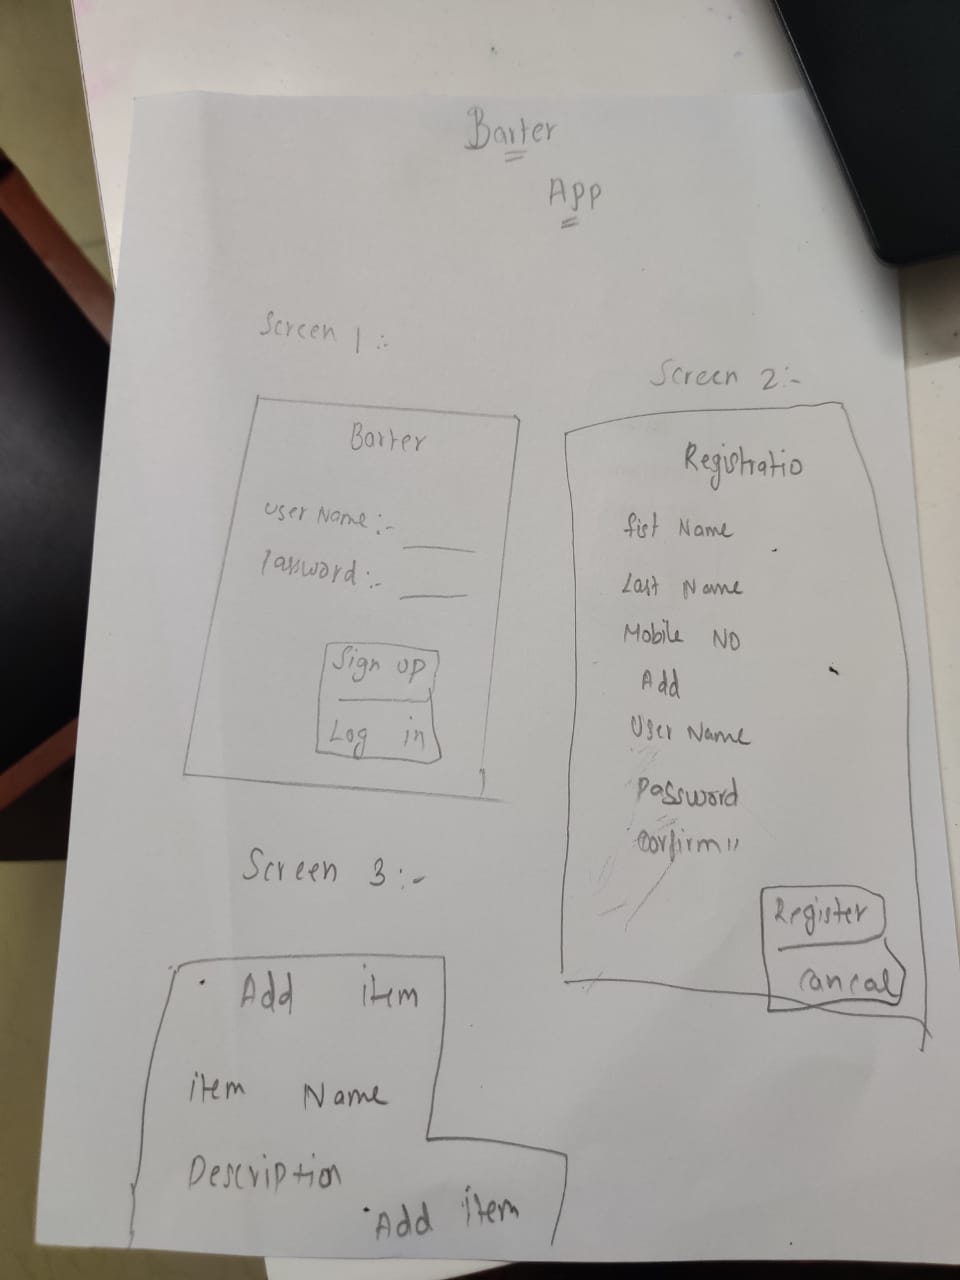 Barter
App
Screen 1:-
Barter
User Name:-
Password:-
Sign up
Log in
Screen 2:-
Registratio
fist Name
Last Name
Mobile NO
Add
User Name
Password
Confirm "
Register
Cancal
Screen 3:-
Add item
item Name
Description
Add item